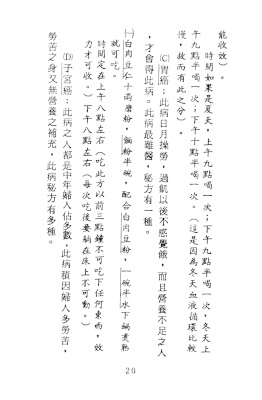 能收效)。
時間如果是夏天,上午九點喝一次;下午九點半喝一次,冬天上
午九點半喝一次;下午十點半喝一次。(這是因為冬天血液循環比較
慢,故而有此之分)。
(C)胃癌:此病日月操勞,過飢以後不感覺餓,而且營養不足之人
,才會得此病。此病最難醫,秘方有一種。
㈠白肉豆仁十兩磨粉,鍋粉半碗,配合白肉豆粉,一碗半水下鍋煮熟
就可吃。
時間定在上午八點左右(吃此方以前三點鐘不可吃下任何東西,效
力才可收。)下午八點左右(每次吃後要躺在床上不可動。)
(D)子宮癌:此病之人都是中年婦人佔多數,此病積因婦人多勞苦,
勞苦之身又無營養之補充,此病秘方有多種。
20